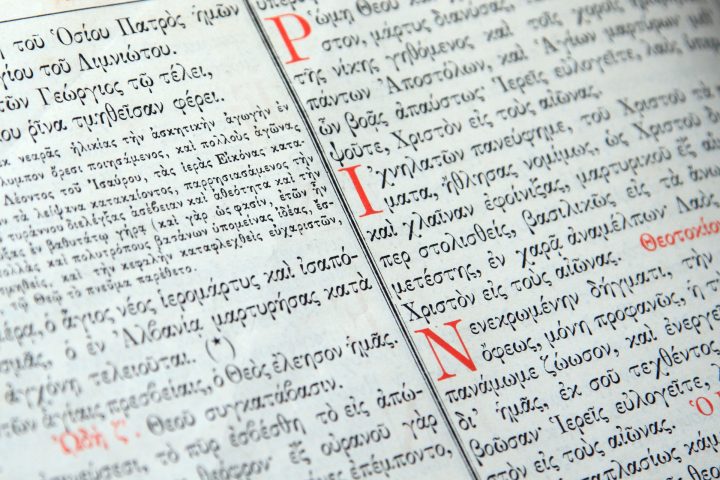 τοῦ Ὁσίου Πατρὸς ἡμῶν
τοῦ Λιμνιώτου.
Γεώργιος τῷ τέλει,
ῥῖνα τμηθεῖσαν φέρει.
νεαρᾶς ἡλικίας τὴν ἀσκητικὴν ἀγωγὴν ἐν
ὄρεσι ποιησάμενος, καὶ πολλοὺς ἀγῶνας
Λέοντος τοῦ Ἰσαύρου, τὰς ἱερὰς Εἰκόνας κατα-
τὰ λείψανα κατακαίοντος, παρρησιασάμενος τὴν
διελέγξας ἀσέβειαν καὶ ἀθεότητα καὶ τὴν
ἐν βαθυτάτῳ γήρᾳ (καὶ γὰρ ὡς φασίν, ἐτῶν ἦν
καὶ πολυτρόπους βασάνων ὑπομείνας ἰδέας,
καὶ τὴν κεφαλὴν καταφλεχθεὶς εὐχαριστῶν,
τῷ Θεῷ τὸ πνεῦμα παρέθετο.
ὁ ἅγιος νέος ἱερομάρτυς καὶ ἰσαπό-
ὁ ἐν Ἀλβανίᾳ μαρτυρήσας κατὰ
ἀγχόνῃ τελειοῦται. (*)
ἁγίαις πρεσβείαις, ὁ Θεὸς ἐλέησον ἡμᾶς.
ᾨδὴ ζ΄. Θεοῦ συγκατάβασιν.
τὸ πῦρ ἐσβέσθη τὸ εἰς
ἐξ οὐρανοῦ γὰρ
ἐπέμποντο,
Ῥώμῃ Θεοῦ
στον, μάρτυς διανύσας,
τῆς νίκης γηθόμενος καὶ τοῖς χοροῖς
πάντων Ἀποστόλων, καὶ Ἁγίων μαρτύρων
ὧν βοᾷς ἀπαύστως· Ἱερεῖς εὐλογεῖτε, λαὸς
ψοῦτε, Χριστὸν εἰς τοὺς αἰῶνας.
Ἰχνηλατῶν πανεύφημε, τοῦ Χριστοῦ τὰ
ματα, ἤθλησας νομίμως, ὡς Χριστοῦ
καὶ χλαῖναν ἐφοίνιξας, μαρτυρικοῦ ἐξ
περ στολισθείς, βασιλικῶς εἰς τὰ
μετέστης, ἐν χαρᾷ ἀναμέλπων· Λαὸς
Χριστὸν εἰς τοὺς αἰῶνας. Θεοτοκίον
Νενεκρωμένην δήγματι, τὴν
ὄφεως, μόνη προφανῶς, ἡ
πανάμωμε ζώωσον, καὶ
δι' ἡμᾶς, ἐκ σοῦ τεχθέντος
βοῶσαν· Ἱερεῖς εὐλογεῖτε,
στὸν εἰς τοὺς αἰῶνας.